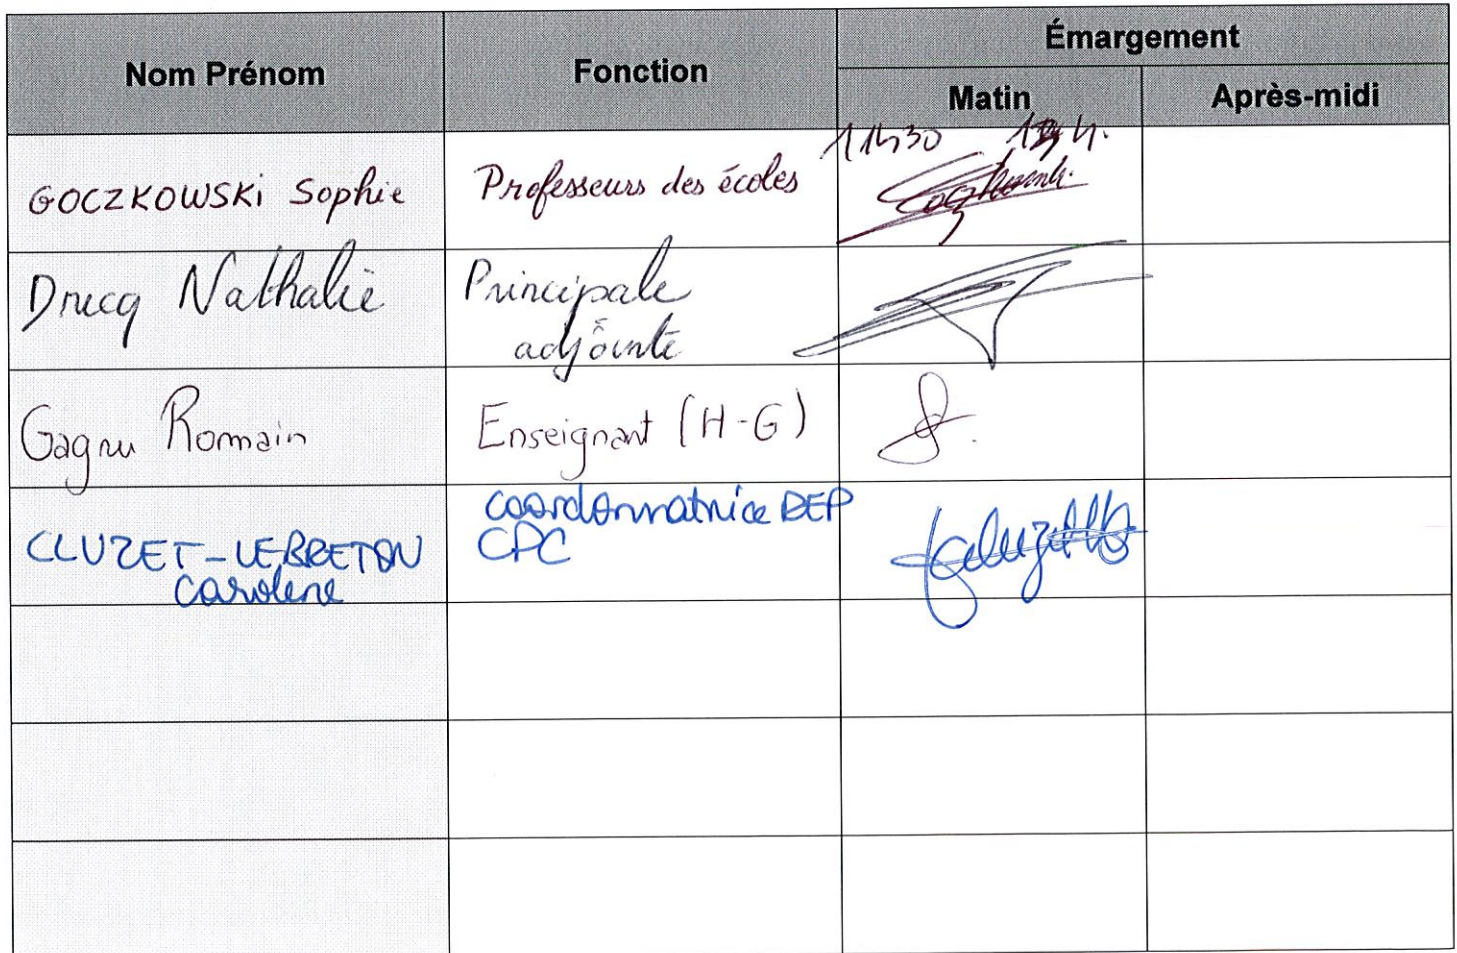 Nom Prénom
Fonction
Émargement
Matin
Après-midi
GOCZKOWSKI Sophie
Professeurs des écoles
11h30
Drecq Nathalie
Principale
adjointe
Romain
Enseignant (H-G)
CLUZET-LEBRETON
Carolene
coordonnatrice REP
CPC